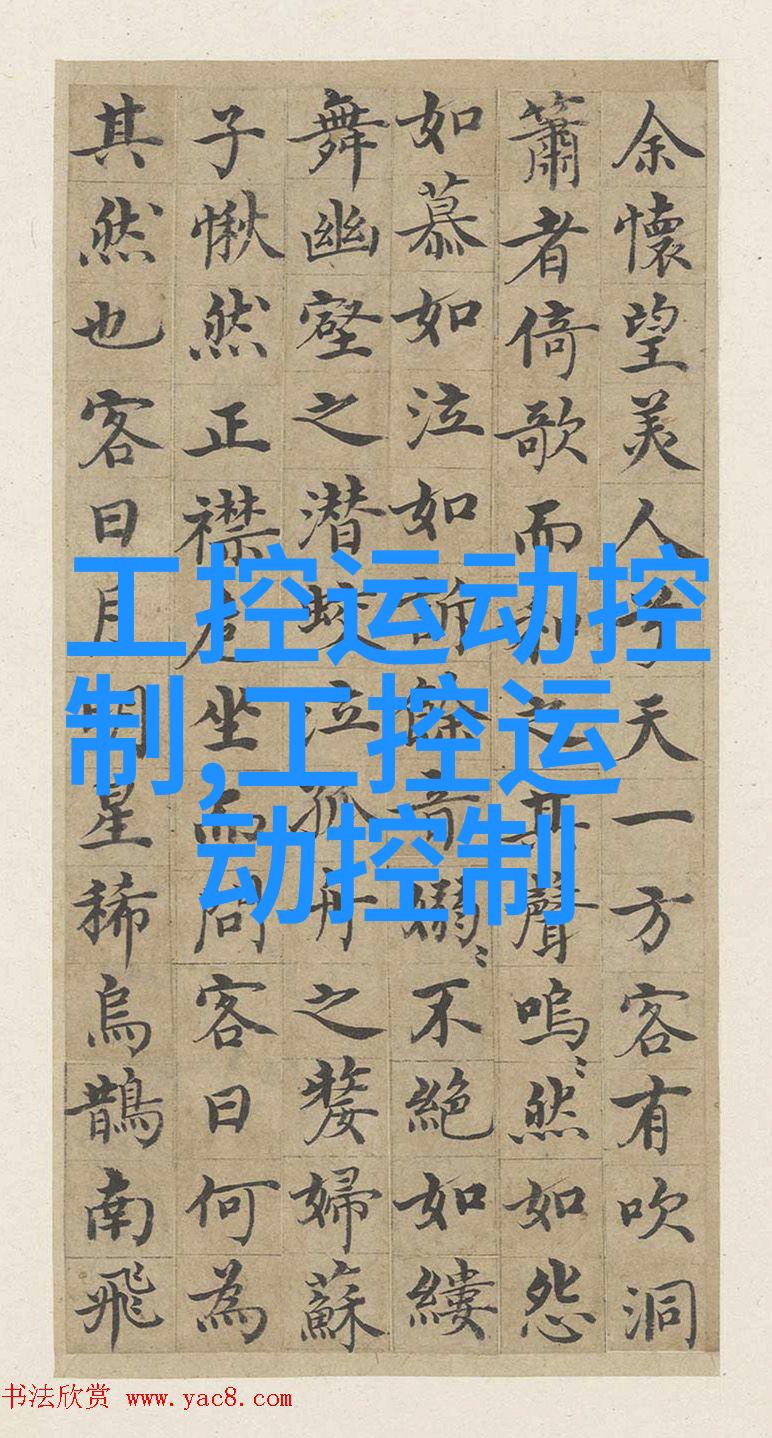 余懷望美人兮天一方客有吹洞
簫者倚歌而和之其聲嗚〻然如怨
如慕如泣如訴餘音嫋〻不絕如縷
舞幽壑之潜蛟泣孤舟之嫠婦蘇
子愀然正襟危坐而問客曰何為
其然也客曰月明星稀烏鵲南飛
工控运动控
制,工控运
动控制
书法欣赏 www.yac8.com